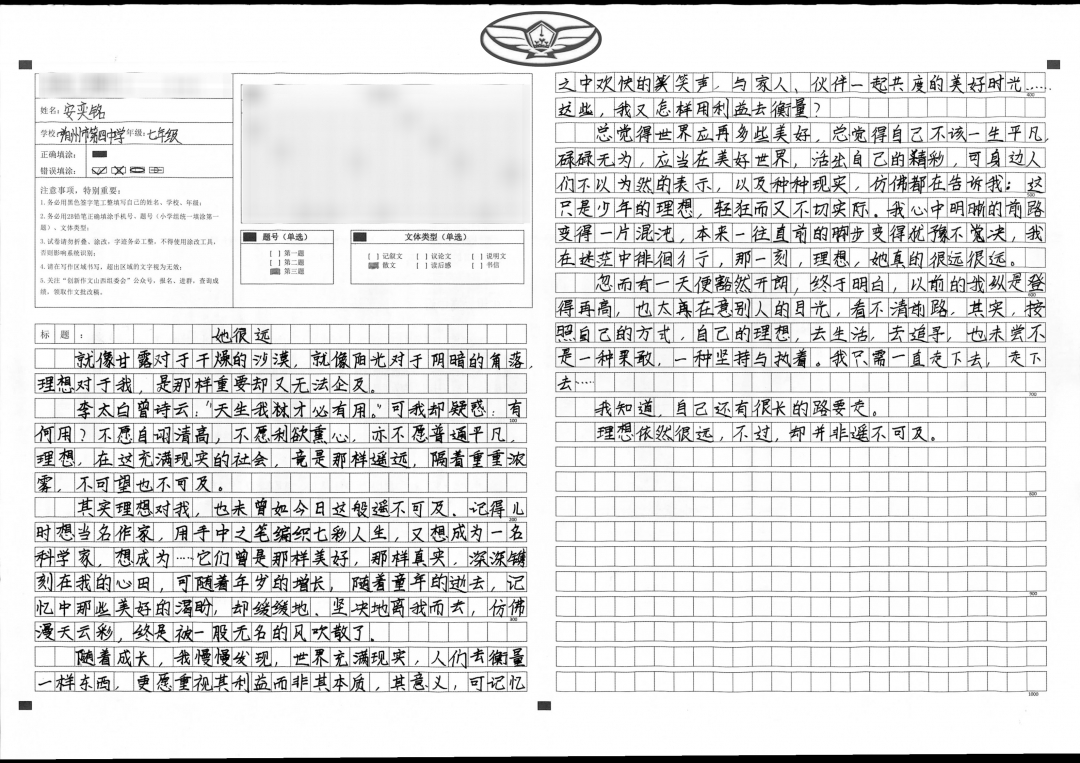 姓名：安奕铭
学校：朔州市第四中学 年级：七年级
正确填涂：
错误填涂：
注意事项，特别重要：
1.务必用黑色签字笔工整填写自己的姓名、学校、年级；
2.务必用2B铅笔正确填涂手机号、题号（小学组统一填涂第一
题）、文体类型；
3.试卷请勿折叠、涂改，字迹务必工整，不得使用涂改工具，
否则影响系统识别；
4.请在写作区域书写，超出区域的文字视为无效；
5.关注“创新作文山西组委会”公众号，报名、进群、查询成
绩、领取作文批改稿。
题号（单选）
[ ] 第一题
[ ] 第二题
第三题
文体类型（单选）
[ ] 记叙文 [ ] 议论文 [ ] 说明文
散文 [ ] 读后感 [ ] 书信
标 题： 她很远
就像甘露对于干燥的沙漠，就像阳光对于阴暗的角落，
理想对于我，是那样重要却又无法企及。
李太白曾诗云：“天生我材才必有用。”可我却疑惑：有
100
何用？不愿自诩清高，不愿利欲熏心，亦不愿普通平凡，
理想，在这充满现实的社会，竟是那样遥远，隔着重重浓
雾，不可望也不可及。
其实理想对我，也未曾如今日这般遥不可及、记得儿
200
时想当名作家，用手中之笔编织七彩人生，又想成为一名
科学家，想成为……它们曾是那样美好，那样真实，深深镌
刻在我的心田，可随着年少的增长，随着童年的逝去，记
忆中那些美好的渴盼，却缓缓地、坚决地离我而去，仿佛
300
漫天云彩，终是被一股无名的风吹散了.
随着成长，我慢慢发现，世界充满现实，人们去衡量
一样东西，更愿重视其利益而非其本质，其意义，可记忆
之中欢快的笑声，与家人、伙伴一起共度的美好时光……
400
这些，我又怎样用利益去衡量？
总觉得世界应再多些美好，总觉得自己不该一生平凡，
碌碌无为，应当在美好世界，活出自己的精彩，可身边人
们不以为然的表示，以及种种现实，仿佛都在告诉我：这
500
只是少年的理想，轻狂而又不切实际。我心中明晰的前路
变得一片混沌，本来一往直前的脚步变得犹豫不觉决，我
在迷茫中徘徊彳亍，那一刻，理想，她真的很远很远。
忽而有一天便豁然开朗，终于明白，以前的我纵是登
600
得再高，也太在意别人的目光，看不清前路，其实，按
照自己的方式，自己的理想，去生活，去追寻，也未尝不
是一种果敢，一种坚持与执着。我只需一直走下去，走下
去……
700
我知道，自己还有很长的路要走。
理想依然很远，不过，却并非遥不可及。
800
900
1000